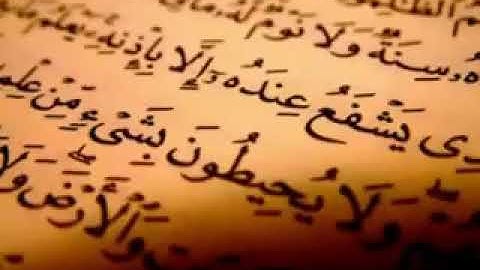 سِنَةٌ وَلَا نَوْمٌ لَّهُ مَا
يَشْفَعُ عِندَهُ إِلَّا بِإِذْنِهِ يَعْلَمُ
وَلَا يُحِيطُونَ بِشَىْءٍ مِّنْ
وَالْأَرْضَ وَلَا